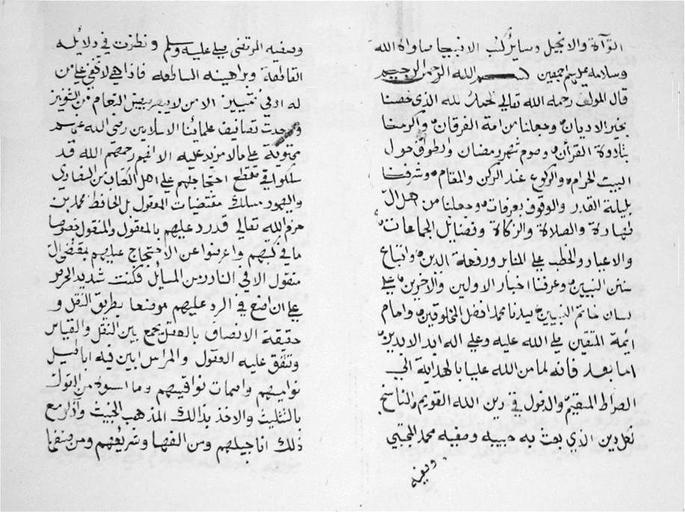 التوراة والانجيل وساير كتب الانبيا صلواة الله
وسلامه عليهم اجمعين بسم الله الرحمن الرحيم
قال المولف رحمه الله تعالى الحمد لله الذي خصنا
بخير الاديان وجعلنا من امة الفرقان واكرمنا
بتلاوة القرأن وصوم شهر رمضان والطوف حول
البيت الحرام والركوع عند الركن والمقام وشرفنا
بليلة القدر والوقوف بعرفات وجعلنا من اهل ال
طهارة والصلاة والزكاة وفضايل الجماعات
والاعياد والخطب على المنابر ورفعة الدين واتباع
سنن النبيين وعرفنا اخبار الاولين والاخرين على
لسان خاتم النبيين سيدنا محمد افضل المخلوقين وامام
ائمة المتقين صلى الله عليه وعلى اله ابد الابدين
اما بعد فانه لما من الله علينا بالهداية الى
الصراط المستقيم والدخول في دين الله القويم والناسخ
لكل دين الذي بعث به حبيبه وصفيه محمد المجتبى
وصفيه
وصفيه المرتضى صلى عليه وسلم ونظرت في دلايله
القاطعة وبراهينه الساطعه فاذا هي لا تخفى على من
له ادنى تمييز الا من لا يفرق بين النعام من
ووجدت تصانيف علمائنا الاسلاميين رضى الله عنهم
محتوية على مالا مزيد عليه الا انهم رحمهم الله قد
سلكوا في معظم احتجاجهم على اهل الكتاب من النصارى
واليهود مسلك مقتضيات المعقول بل الحافظ محمد بن
حزم الله تعالى قد رد عليهم بالمعقول والمنقول
ما في كتبهم واعرضوا عن الاحتجاج عليهم بمقتضى ال
منقول الا في النادر من المسايل فكنت شديد الحرص
على ان اضع في الرد عليهم موضعا بطريق النقل و
حقيقة الانصاف يجمع بين النقل والقياس
وتتفق عليه العقول والمراس ابين فيه اباطيل
نواميسهم وما اسسوه من القول
بالتثليث والاخذ بذالك المذهب الخبيث واذكر مع
ذلك اناجيلهم ومن الفها وشريعتهم ومن صنفها